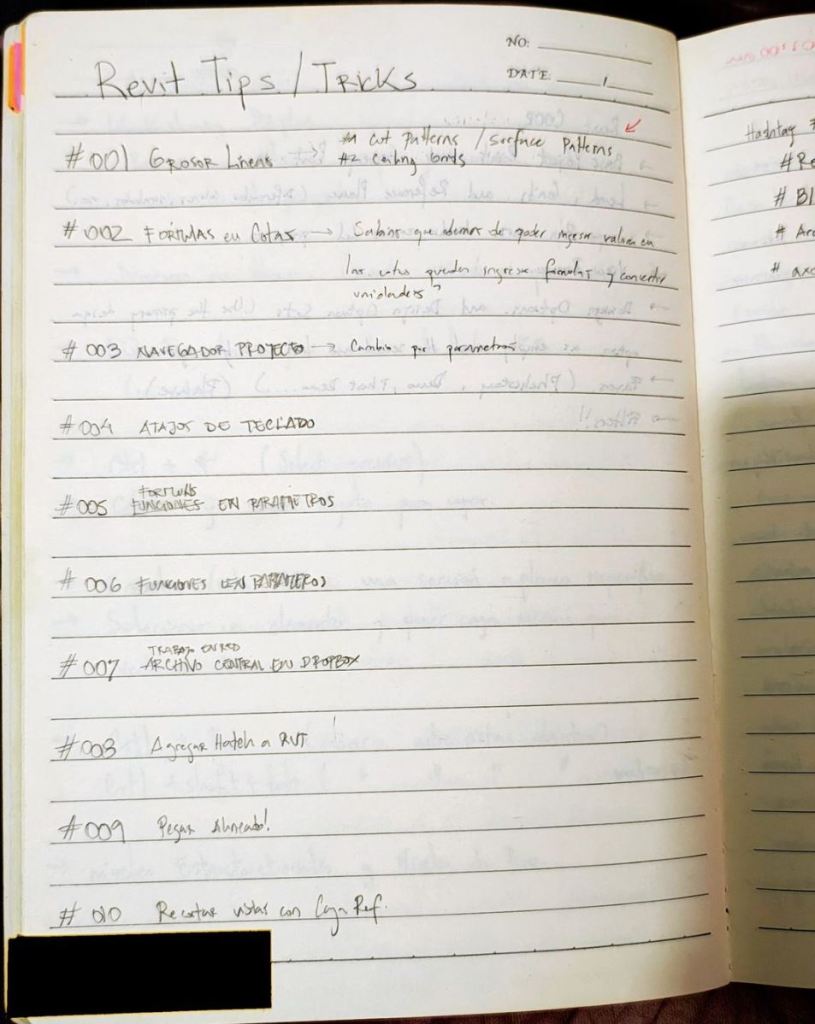 NO:
DATE:
Revit Tips / Tricks
#1 Cut Patterns / Surface Patterns
#001 GROSOR Lineas #2 Ceiling Grids
#002 FÓRMULAS en Cotas → Sabias que ademas de poder ingresar valores en
las cotas puedes ingresar fórmulas y convertir
unidades?
#003 NAVEGADOR PROYECTO → Cambio por parametros
#004 ATAJOS DE TECLADO
FORMULAS
#005 FUNCIONES EN PARAMETROS
#006 FUNCIONES EN PARAMETROS
TRABAJO EN RED
#007 ARCHIVO CENTRAL EN DROPBOX
#008 Agregar Hatch a RVT
#009 Pegar Alineado!
#010 Recortar vistas con Caja Ref.
Hashtag #
#Re
#Bl
#Arc